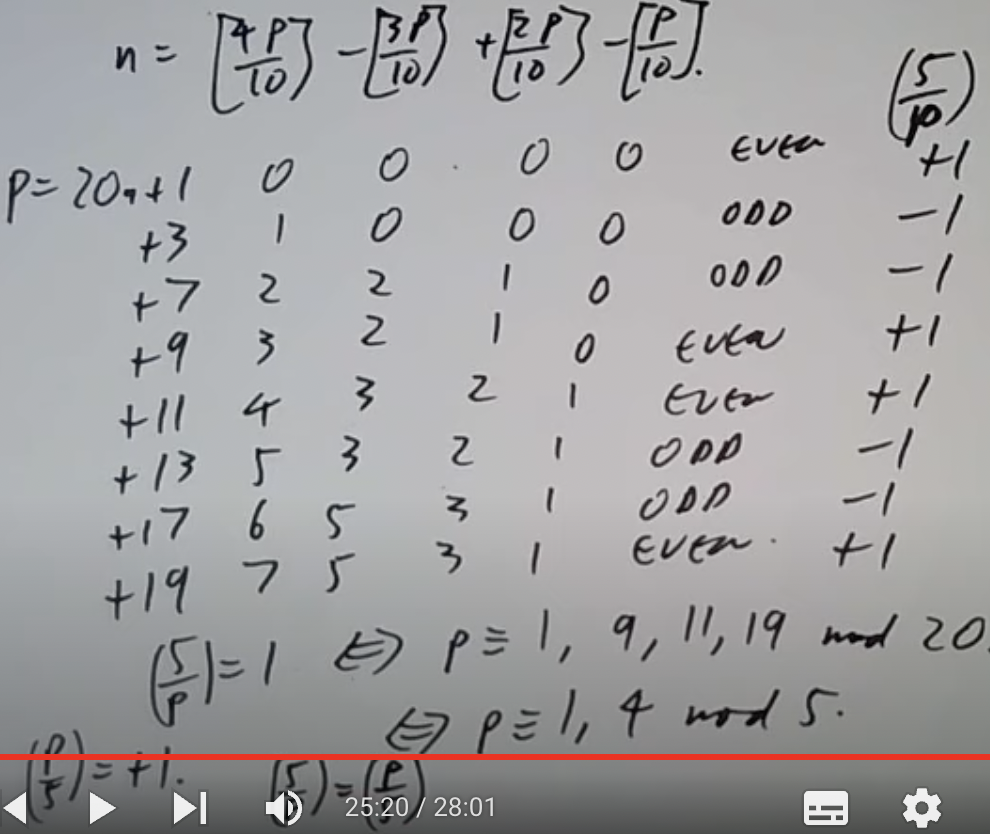 n = [4P/10] - [3P/10] + [2P/10] - [P/10].
(5/p)
P = 20n+1 0 0 0 0 EVEN +1
+3 1 0 0 0 ODD -1
+7 2 2 1 0 ODD -1
+9 3 2 1 0 EVEN +1
+11 4 3 2 1 EVEN +1
+13 5 3 2 1 ODD -1
+17 6 5 3 1 ODD -1
+19 7 5 3 1 EVEN +1
(5/p) = 1 ⇔ p ≡ 1, 9, 11, 19 mod 20.
⇔ p ≡ 1, 4 mod 5.
(p/5) = +1. (5/p) = (p/5)
25:20 / 28:01